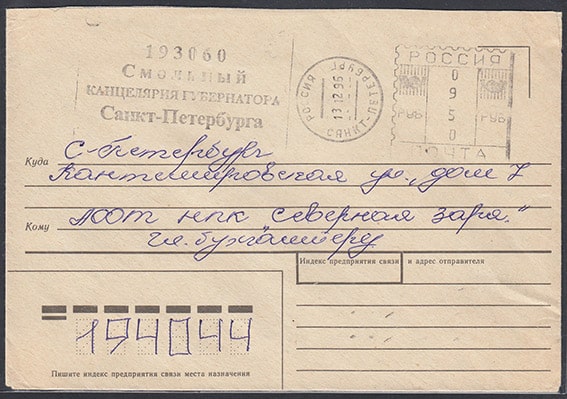 193060
Смольный
КАНЦЕЛЯРИЯ ГУБЕРНАТОРА
Санкт-Петербурга
РОССИЯ
13 12 96
САНКТ-ПЕТЕРБУРГ
РОССИЯ
0950
РУБ РУБ
ПОЧТА
Куда С-Петербург
Кантемировская ул., дом 7
Кому АООТ НПК Северная заря."
гл. бухгалтеру
Индекс предприятия связи и адрес отправителя
194044
Пишите индекс предприятия связи места назначения